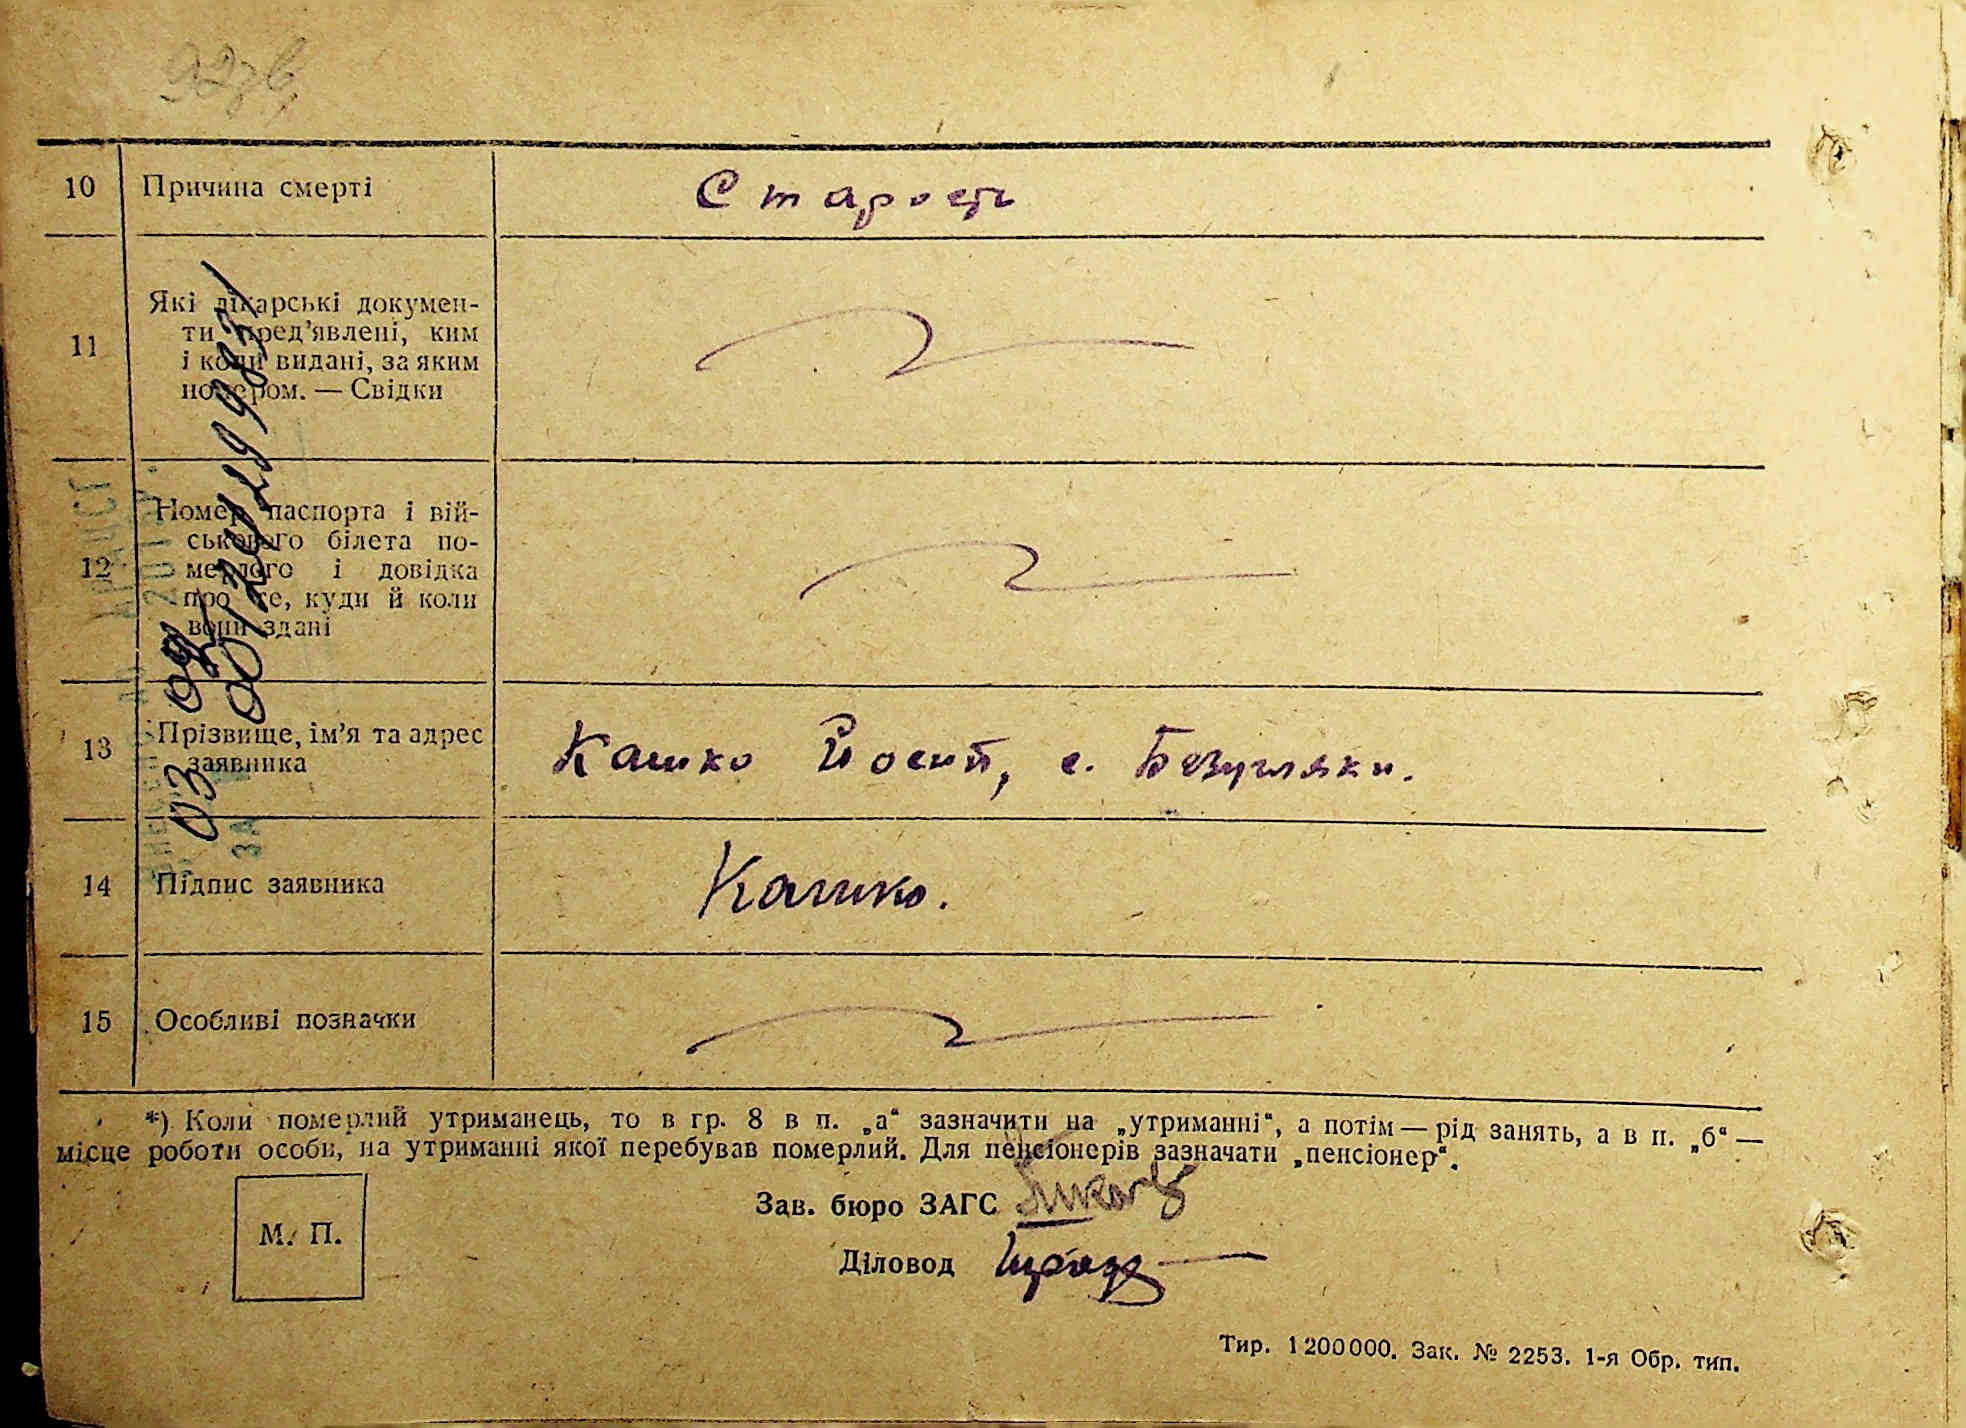 10 Причина смерті Старость
11 Які лікарські докумен-
ти пред’явлені, ким
і коли видані, за яким
номером. — Свідки
12 Номер паспорта і вій-
ськового білета по-
мерлого і довідка
про те, куди й коли
вони здані
13 Прізвище, ім’я та адрес Кашко Йосип, с. Безугляки.
заявника
14 Підпис заявника Кашко.
15 Особливі позначки
*) Коли померлий утриманець, то в гр. 8 в п. „а“ зазначити на „утриманні“, а потім — рід занять, а в п. „б“ —
місце роботи особи, на утриманні якої перебував померлий. Для пенсіонерів зазначати „пенсіонер“.
Зав. бюро ЗАГС
М. П.
Діловод
Тир. 1200000. Зак. № 2253. 1-я Обр. тип.